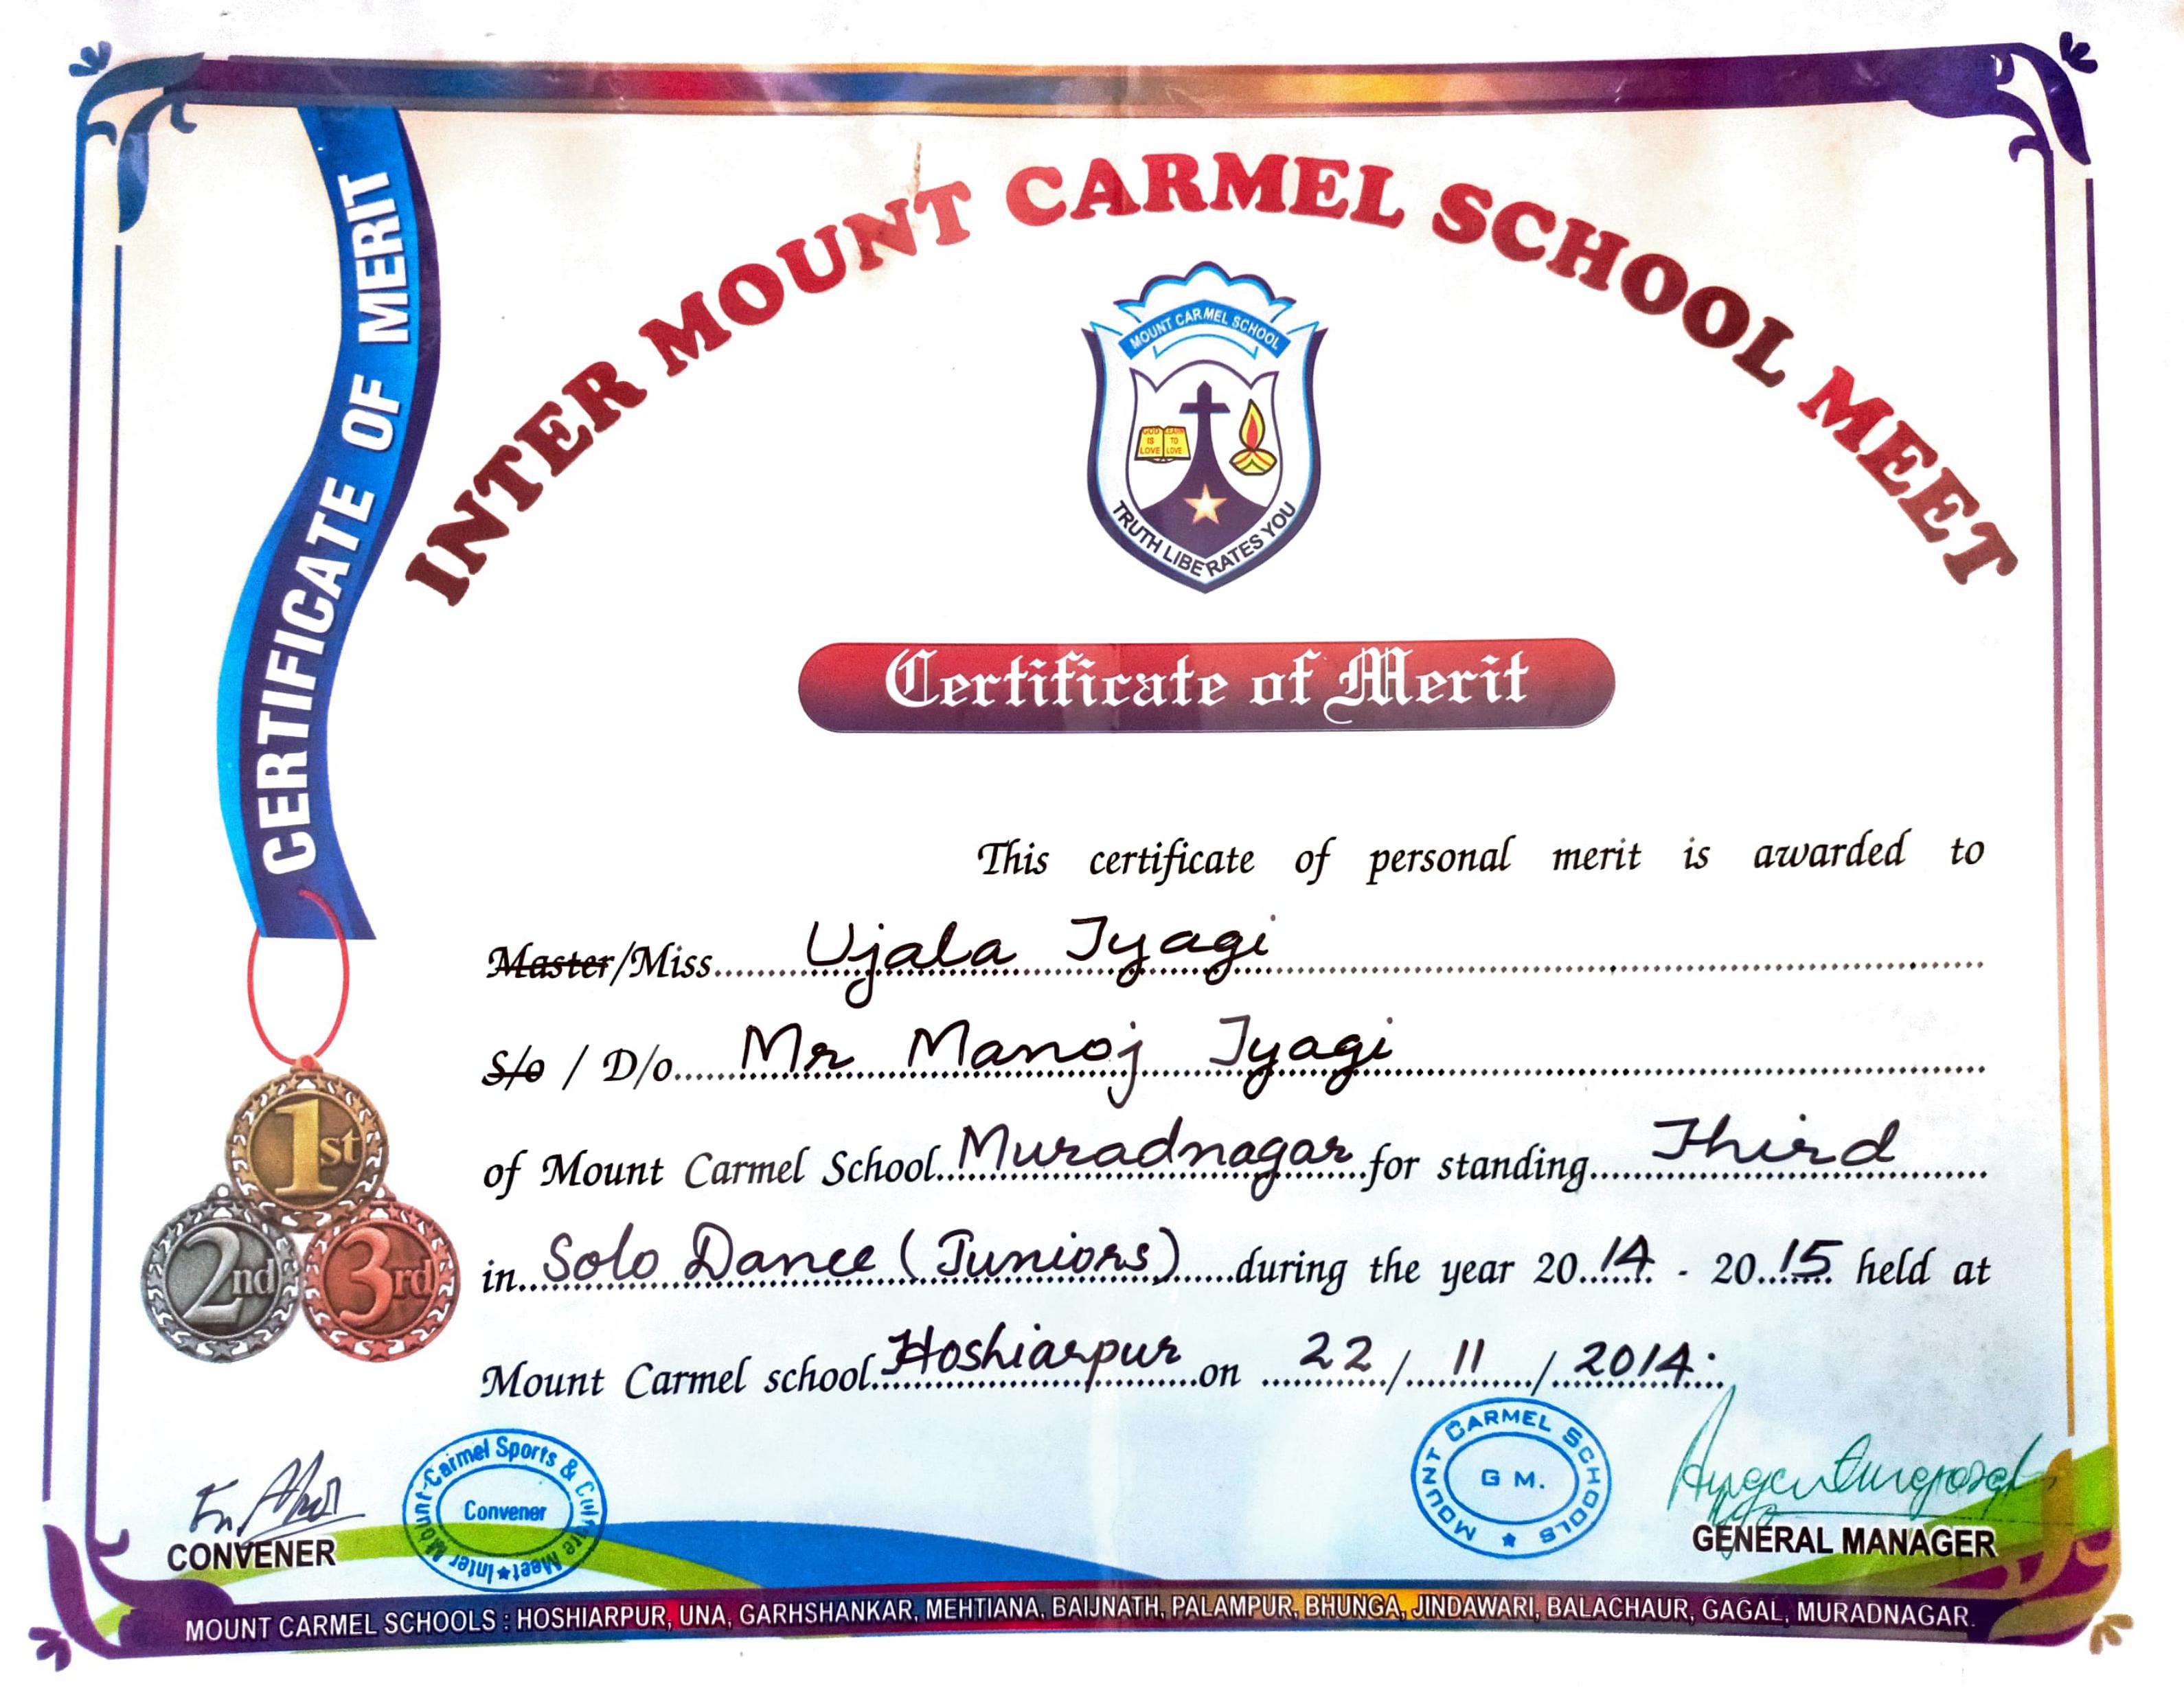 INTER MOUNT CARMEL SCHOOL MEET
CERTIFICATE OF MERIT
MOUNT CARMEL SCHOOL
GOD IS LOVE LEARN TO LOVE
TRUTH LIBERATES YOU
Certificate of Merit
This certificate of personal merit is awarded to
Master/Miss Ujala Tyagi
S/o / D/o Mr Manoj Tyagi
of Mount Carmel School Muradnagar for standing Third
in Solo Dance (Juniors) during the year 2014 - 2015 held at
Mount Carmel school Hoshiarpur on 22/11/2014.
1st
2nd 3rd
Inter Mount-Carmel Sports & Culture Meet
Convener
MOUNT CARMEL SCHOOLS
G M.
CONVENER
GENERAL MANAGER
MOUNT CARMEL SCHOOLS : HOSHIARPUR, UNA, GARHSHANKAR, MEHTIANA, BAIJNATH, PALAMPUR, BHUNGA, JINDAWARI, BALACHAUR, GAGAL, MURADNAGAR.